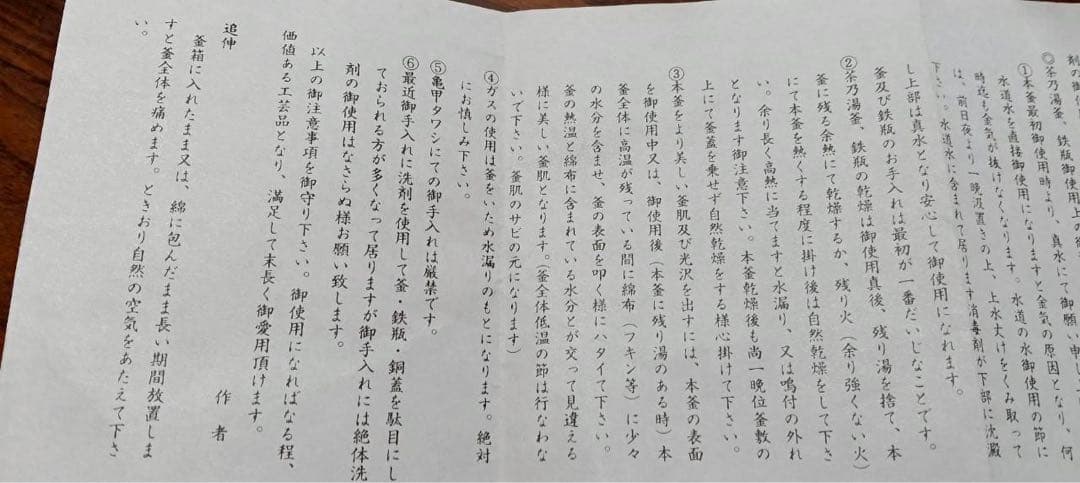 剤の御使
◎茶乃湯釜、鉄瓶御使用上の
①本釜最初御使用時より、真水にて御願い申し上
水道水を直接御使用になりますと金気の原因となり、何
時迄も金気が抜けなくなります。水道の水御使用の節に
は、前日夜より一晩汲置きの上、上水丈けをくみ取って
下さい。水道水に含まれて居ります消毒剤が下部に沈澱
し上部は真水となり安心して御使用になれます。
釜及び鉄瓶のお手入れは最初が一番だいじなことです。
②茶乃湯釜、鉄瓶の乾燥は御使用真後、残り湯を捨て、本
釜に残る余熱にて乾燥するか、残り火（余り強くない火）
にて本釜を熱くする程度に掛け後は自然乾燥をして下さ
い。余り長く高熱に当てますと水漏り、又は鳴付の外れ
となります御注意下さい。本釜乾燥後も尚一晩位釜敷の
上にて釜蓋を乗せず自然乾燥をする様心掛けて下さい。
③本釜をより美しい釜肌及び光沢を出すには、本釜の表面
を御使用中又は、御使用後（本釜に残り湯のある時）本
釜全体に高温が残っている間に綿布（フキン等）に少々
の水分を含ませ、釜の表面を叩く様にハタイて下さい。
釜の熱温と綿布に含まれている水分とが交って見違える
様に美しい釜肌となります。（釜全体低温の節は行なわな
いで下さい。釜肌のサビの元になります）
④ガスの使用は釜をいため水漏りのもとになります。絶対
にお慎しみ下さい。
⑤亀甲タワシにての御手入れは厳禁です。
⑥最近御手入れに洗剤を使用して釜・鉄瓶・銅蓋を駄目にし
ておられる方が多くなって居りますが御手入れには絶体洗
剤の御使用はなさらぬ様お願い致します。
以上の御注意事項を御守り下さい。御使用になればなる程、
価値ある工芸品となり、満足して末長く御愛用頂けます。
作者
追伸
釜箱に入れたまま又は、綿に包んだまま長い期間放置しま
すと釜全体を痛めます。ときおり自然の空気をあたえて下さ
い。